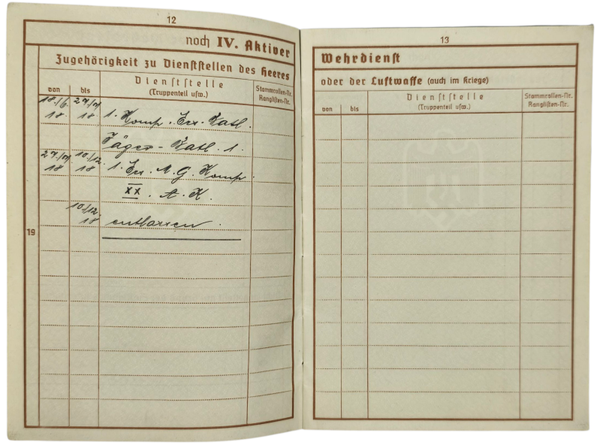 12
noch IV. Aktiver
Zugehörigkeit zu Dienststellen des Heeres
von bis Dienststelle (Truppenteil usw.) Stammrollen-Nr. Ranglisten-Nr.
18 18 1. Komp. Ers. Batl.
Jäger-Batl. 1.
18 18 1. Ers. M.G. Komp.
XX. A.K.
10/12. 18 entlassen.
19
13
Wehrdienst
oder der Luftwaffe (auch im Kriege)
von bis Dienststelle (Truppenteil usw.) Stammrollen-Nr. Ranglisten-Nr.